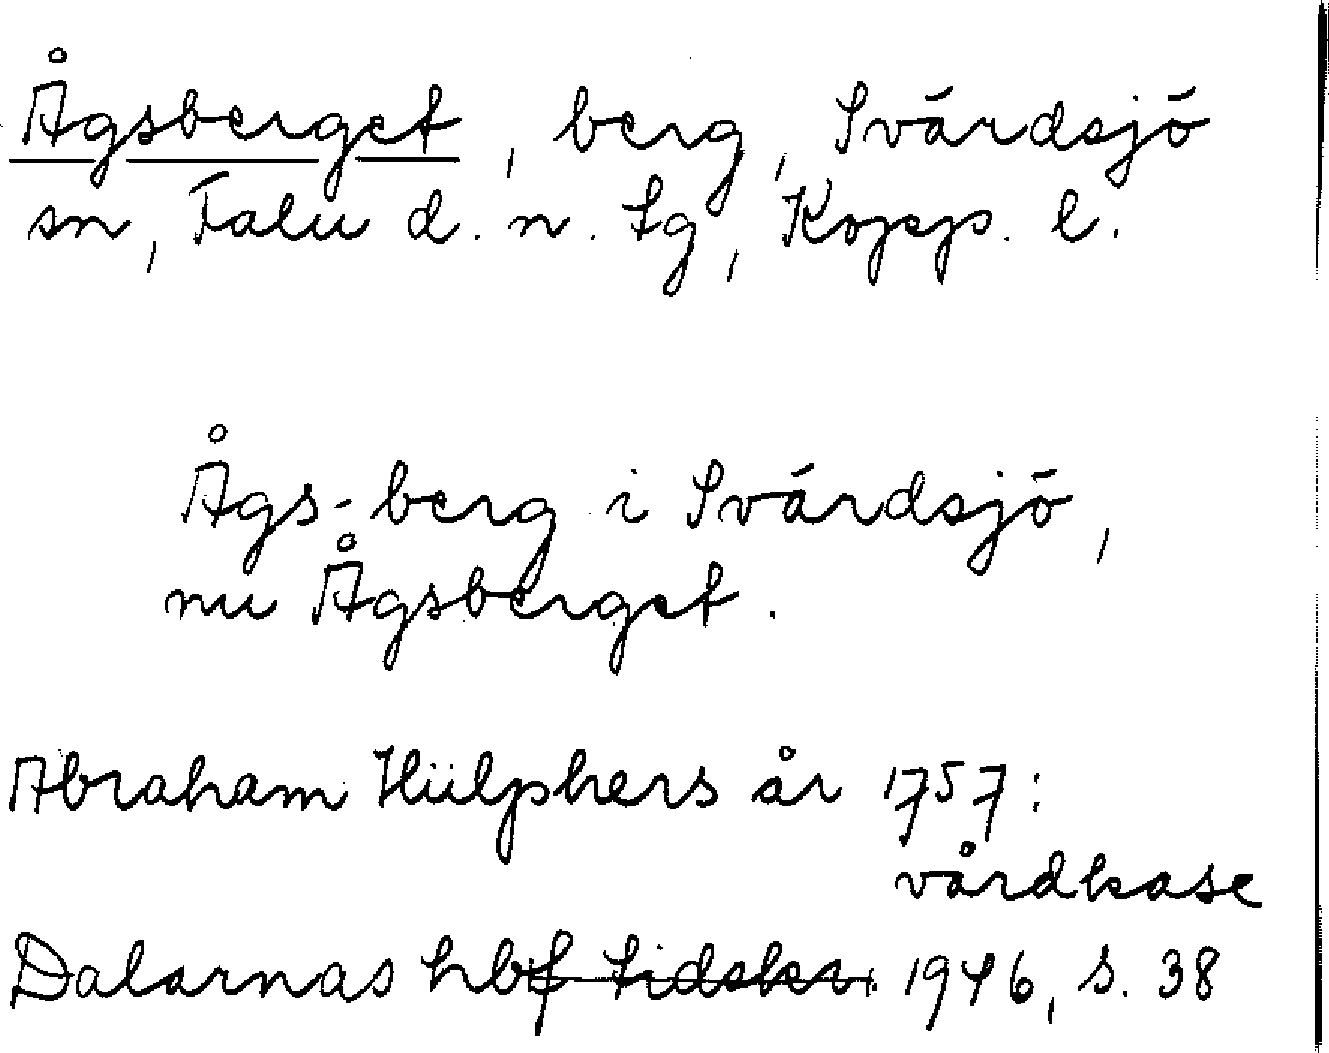 Ågsberget, berg, Svärdsjö
sn, Falu d. n. tg, Kopp. l.
Ågs-berg i Svärdsjö,
nu Ågsberget.
Abraham Hülphers år 1757:
vårdkase
Dalarnas hbf tidskr. 1946, s. 38